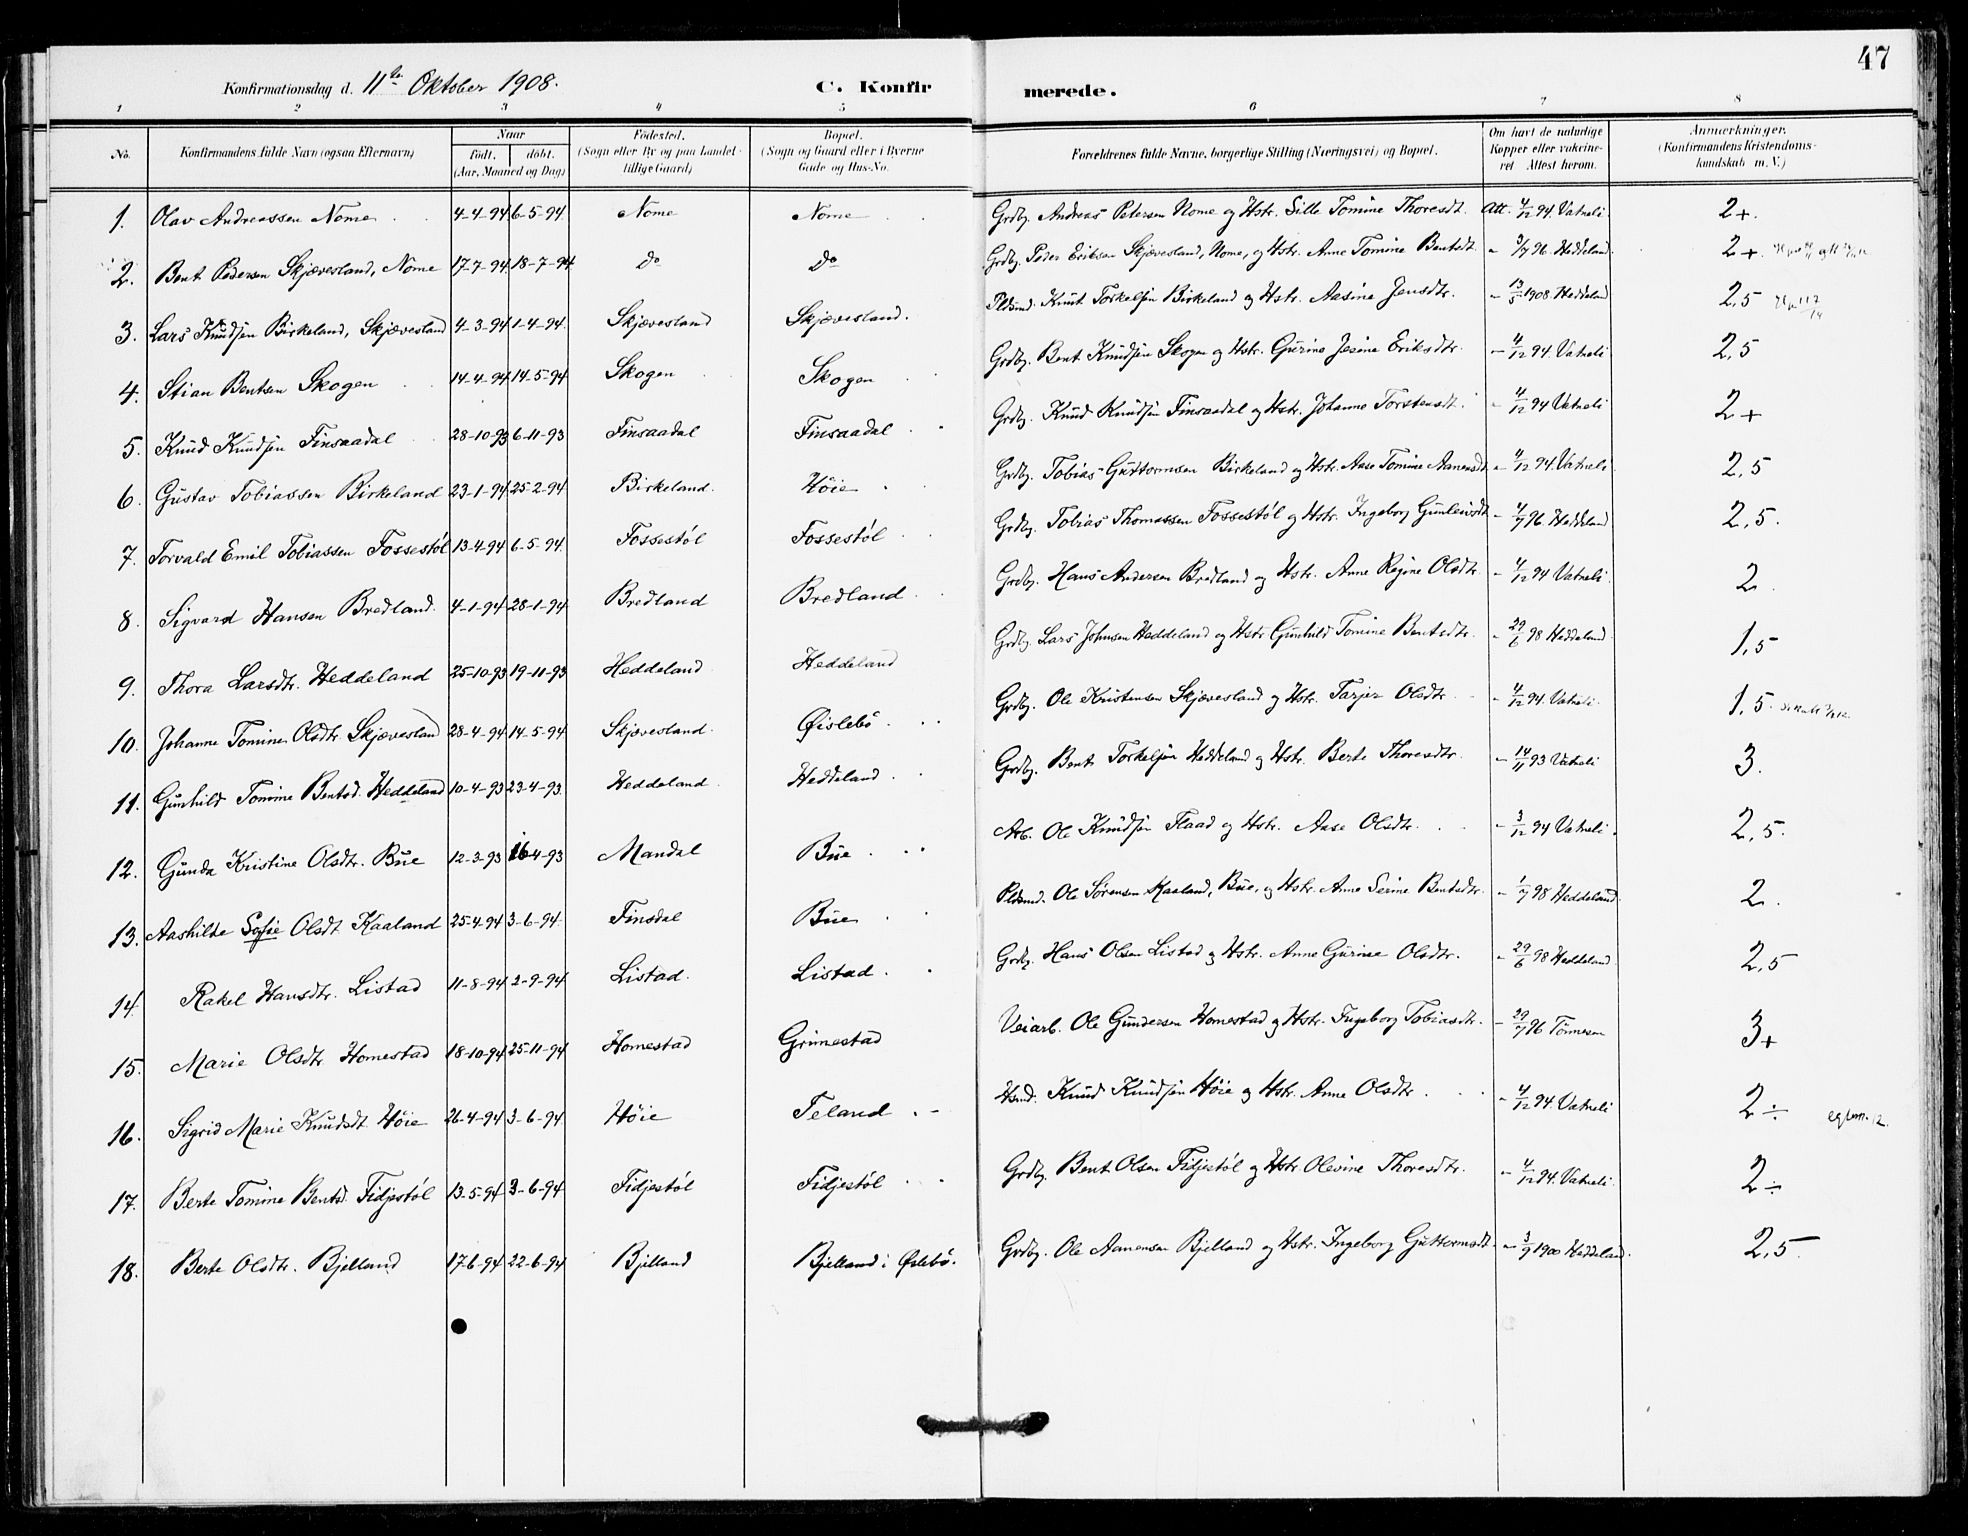 47
Konfirmationsdag d. 11te Oktober 1908.
C. Konfirmerede.
1 2 3 4 5 6 7 8
No. | Konfirmandens fulde Navn (ogsaa Efternavn) | Naar født. | døbt. (Aar, Maaned og Dag) | Fødested. (Sogn eller By og paa Landet tillige Gaard) | Bopæl. (Sogn og Gaard eller i Byerne Gade og Hus-No. | Forældrenes fulde Navne, borgerlige Stilling (Næringsvei) og Bopæl. | Om havt de naturlige Kopper eller vakcineret Attest herom. | Anmærkninger. (Konfirmandens Kristendomskundskab m. V.)
1. Olav Andreassen Nome 4-4-94 6-5-94 Nome Nome Grdbg. Andreas Petersen Nome og Hstr. Sille Tomine Thoresdt. Att. 4/12 94. Vatneli 2+.
2. Bent Pedersen Skjævesland, Nome 17-7-94 18-7-94 Do Do Grdbg. Peder Eriksen Skjævesland, Nome, og Hstr. Anne Tomine Bentsdt. - 3/7 96. Heddeland 2+.
3. Lars Knudsen Birkeland, Skjævesland 4-3-94 1-4-94 Skjævesland Skjævesland. Pldsmd. Knut Torkelsen Birkeland og Hstr. Aasine Jensdtr. - 13/5 1908 Heddeland 2,5
4. Stian Bentsen Skogen 14-4-94 14-5-94 Skogen Skogen Grdbg. Bent Knudsen Skogen og Hstr. Gurine Jesine Eriksdtr. - 4/12 94. Vatneli 2,5
5. Knud Knudsen Finsaadal 28-10-93 6-11-93 Finsaadal Finsaadal Grdbg. Knud Knudsen Finsaadal og Hstr. Johanne Torstensdt. - 4/12 94 Vatneli 2+
6. Gustav Tobiassen Birkeland 23-1-94 25-2-94 Birkeland. Høie Grdbg. Tobias Guttormsen Birkeland og Hstr. Aase Tomine Aanensdt. - 4/12 94. Vatneli 2,5
7. Torvald Emil Tobiassen Fossestøl 13-4-94 6-5-94. Fossestøl Fossestøl Grdbg. Tobias Thomassen Fossestøl og Hstr. Ingeborg Gunleivsdt - 4/7 96. Heddeland 2,5.
8. Sigvard Hansen Bredland. 4-1-94 28-1-94 Bredland Bredland Grdbg. Hans Andersen Bredland og Hstr. Anne Regine Olsdtr. - 4/12 94 Vatneli 2.
9. Thora Larsdtr. Heddeland 25-10-93 19-11-93 Heddeland Heddeland Grdbg. Lars Johnsen Heddeland og Hstr Gunhild Tomine Bentsdtr. - 29/6 98 Heddeland 1,5
10. Johanne Tomine Olsdtr. Skjævesland 28-4-94 14-5-94 Skjævesland. Øislebø Grdbg. Ole Kristensen Skjævesland og Hstr. Tarjer Olsdtr. - 4/12 94. Vatneli. 1,5.
11. Gunhild Tomine Bentsd. Heddeland 10-4-93 23-4-93. Heddeland Heddeland Grdbg. Bent Torkelsen Heddeland og Hstr. Berte Thoresdtr. - 14/11 93 Vatneli 3.
12. Gunda Kristine Olsdtr. Bue 12-3-93 16-4-93 Mandal Bue Arb. Ole Knudsen Flaad og Hstr. Aase Olsdtr. - 3/12 94 Vatneli. 2,5.
13. Aashilde Sofie Olsdt Kaaland 25-4-94 3-6-94. Finsdal Bue Pldsmd. Ole Sørensen Kaaland, Bue, og Hstr. Anne Serine Bentsdtr. - 1/7 98 Heddeland 2.
14. Rakel Hansdtr. Listad 11-8-94 2-9-94 Listad. Listad Grdbg. Hans Olsen Listad og Hstr. Anne Gurine Olsdtr. - 29/6 98 Heddeland 2,5
15. Marie Olsdtr. Homestad 18-10-94 25-11-94 Homestad Grimestad Veiarb. Ole Gundersen Homestad og Hstr. Ingeborg Tobiasdtr. - 29/7 96 Tønnesen 3+
16. Sigrid Marie Knudsdt Høie 26-4-94 3-6-94. Høie Teland Hsmd. Knud Knudsen Høie og Hstr. Anne Olsdtr - 4/12 94. Vatneli 2÷
17. Berte Tomine Bentsd. Fidjestøl 13-5-94 3-6-94 Fidjestøl Fidjestøl Grdbg. Bent Olsen Fidjestøl og Hstr. Olevine Thoresdtr. - 4/12 94. Vatneli 2÷
18. Berte Olsdtr. Bjelland 17-6-94 22-6-94 Bjelland Bjelland i Øslebø. Grdbg. Ole Aanensen Bjelland og Hstr. Ingeborg Guttormsdt. - 3/9 1900 Heddeland. 2,5.